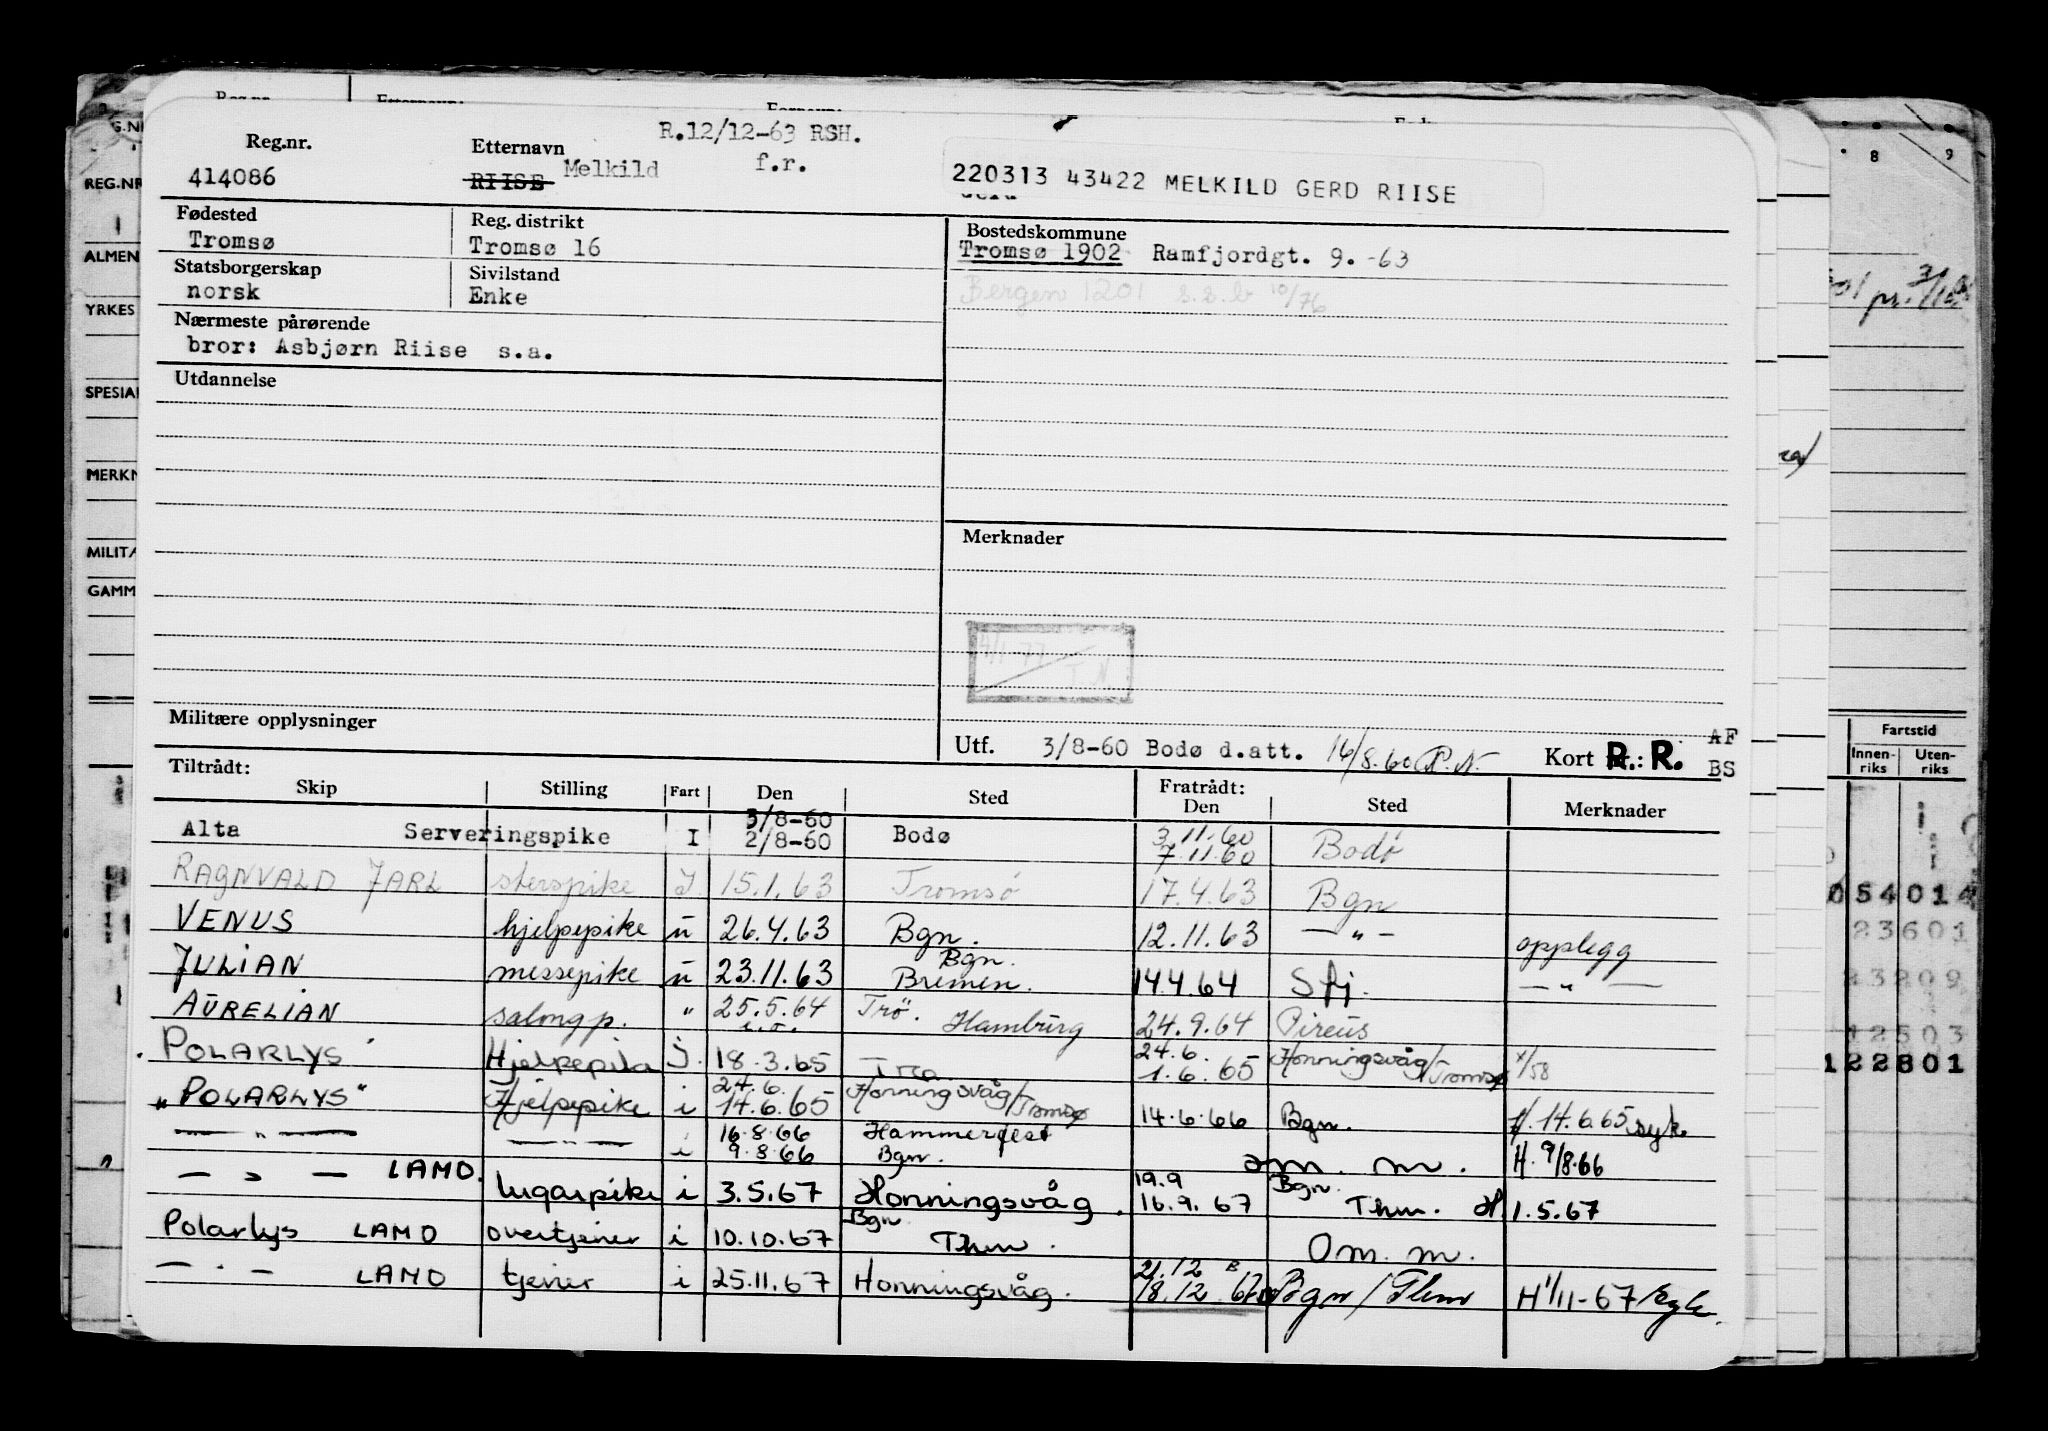 R.12/12-63 RSH.
Reg.nr. Etternavn
414086 RIISE Melkild f.r. 220313 43422 MELKILD GERD RIISE
Fødested Reg. distrikt Bostedskommune
Tromsø Tromsø 16 Tromsø 1902 Ramfjordgt. 9. -63
Statsborgerskap Sivilstand
norsk Enke Bergen 1201 s.s.b 10/76
Nærmeste pårørende
bror: Asbjørn Riise s.a.
Utdannelse
Merknader
4/1 77
T.N.
Militære opplysninger
Utf. 3/8-60 Bodø d.att. 16/8.60 P.N. Kort R.: R. AF
BS
Tiltrådt: Fratrådt:
Skip Stilling Fart Den Sted Den Sted Merknader
3/8-60 3.11.60
Alta Serveringspike I 2/8-60 Bodø 7.11.60 Bodø
RAGNVALD JARL sterspike I. 15.1.63 Tromsø 17.4.63 Bgn
VENUS hjelpepike u 26.4.63 Bgn. 12.11.63 — " — opplegg
Bgn.
JULIAN messepike u 23.11.63 Bremen. 14.4.64 Sfj. — " —
AURELIAN salongp. " 25.5.64 Trö. Hamburg 24.9.64 Pireus
24.6.
POLARLYS Hjelpepike I. 18.3.65 Tro 1.6.65 Honningsvåg/Tromsø x/58
24.6.
"POLARLYS" Hjelpepike i 14.6.65 Honningsvåg/Tromsø 14.6.66 Bgn. H. 14.6.65 syk
16.8.66 Hammerfest
— " — — " — i 9.8.66 Bgn. om. m. H. 9/8.66
19.9 Bgn.
— " — LAMO. lugarpike i 3.5.67 Honningsvåg. 16.9.67 Thm. H. 1.5.67
Bgn
Polarlys LAMO overtjener i 10.10.67 Thm. Om. m.
21.12 B
— " — LAMO tjener i 25.11.67 Honningsvåg. 18.12.67 Bgn / Thm H 1/11-67 syk.
REG.NR
ALMEN
YRKES
SPESIAL
MERKN
MILITÆ
GAMM
8 9
Fartstid
Innen-
riks
Uten-
riks
54014
23601
23209
12503
122801